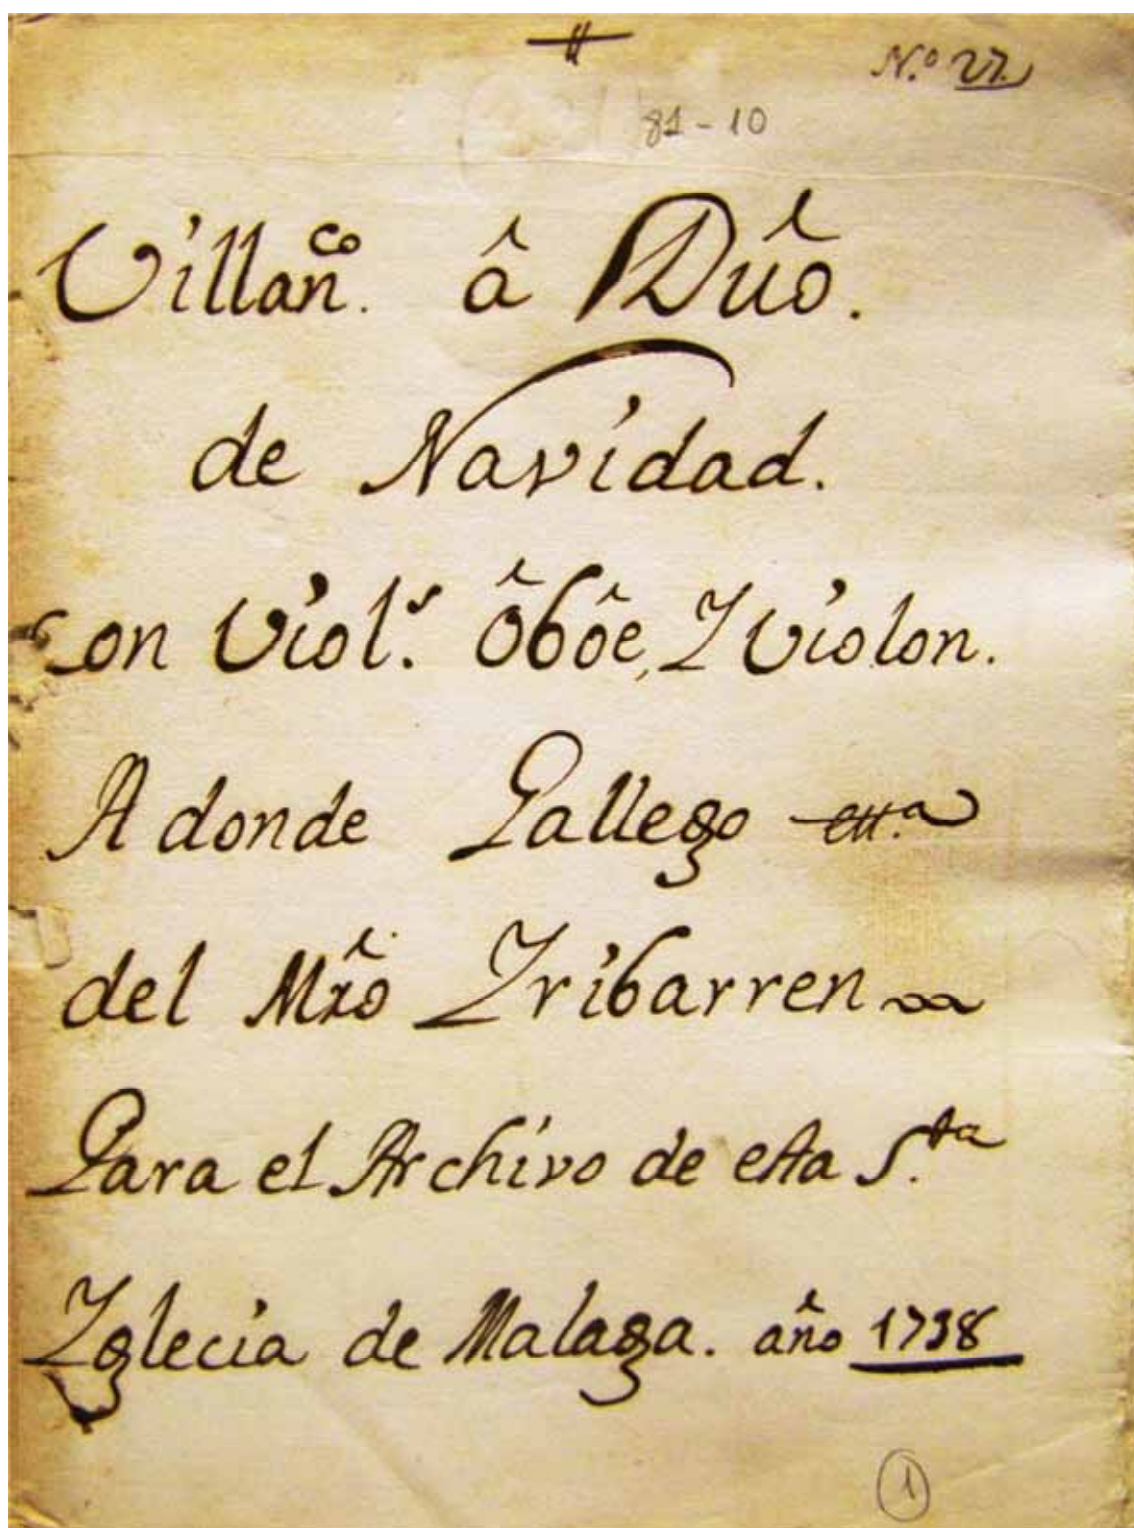 N.º 27.
81-10
Villan.co â Dûo.
de Navidad.
con Viol.s Ôbôe, Y Violon.
A donde Gallego ett.a
del Mrô Yribarren
Para el Archivo de esta S.ta
Yglecia de Malaga. año 1738
1